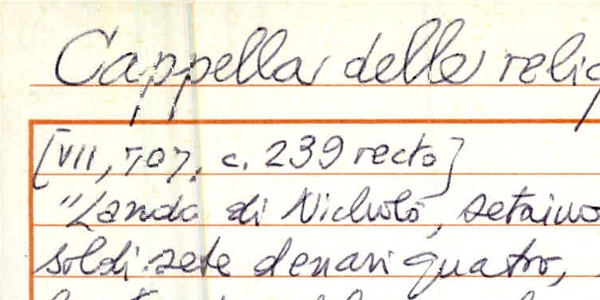 Cappella delle reliq
[VII, 707, c. 239 recto]
"Lando di Nicholò, setaiuo
soldi sete denari quatro,